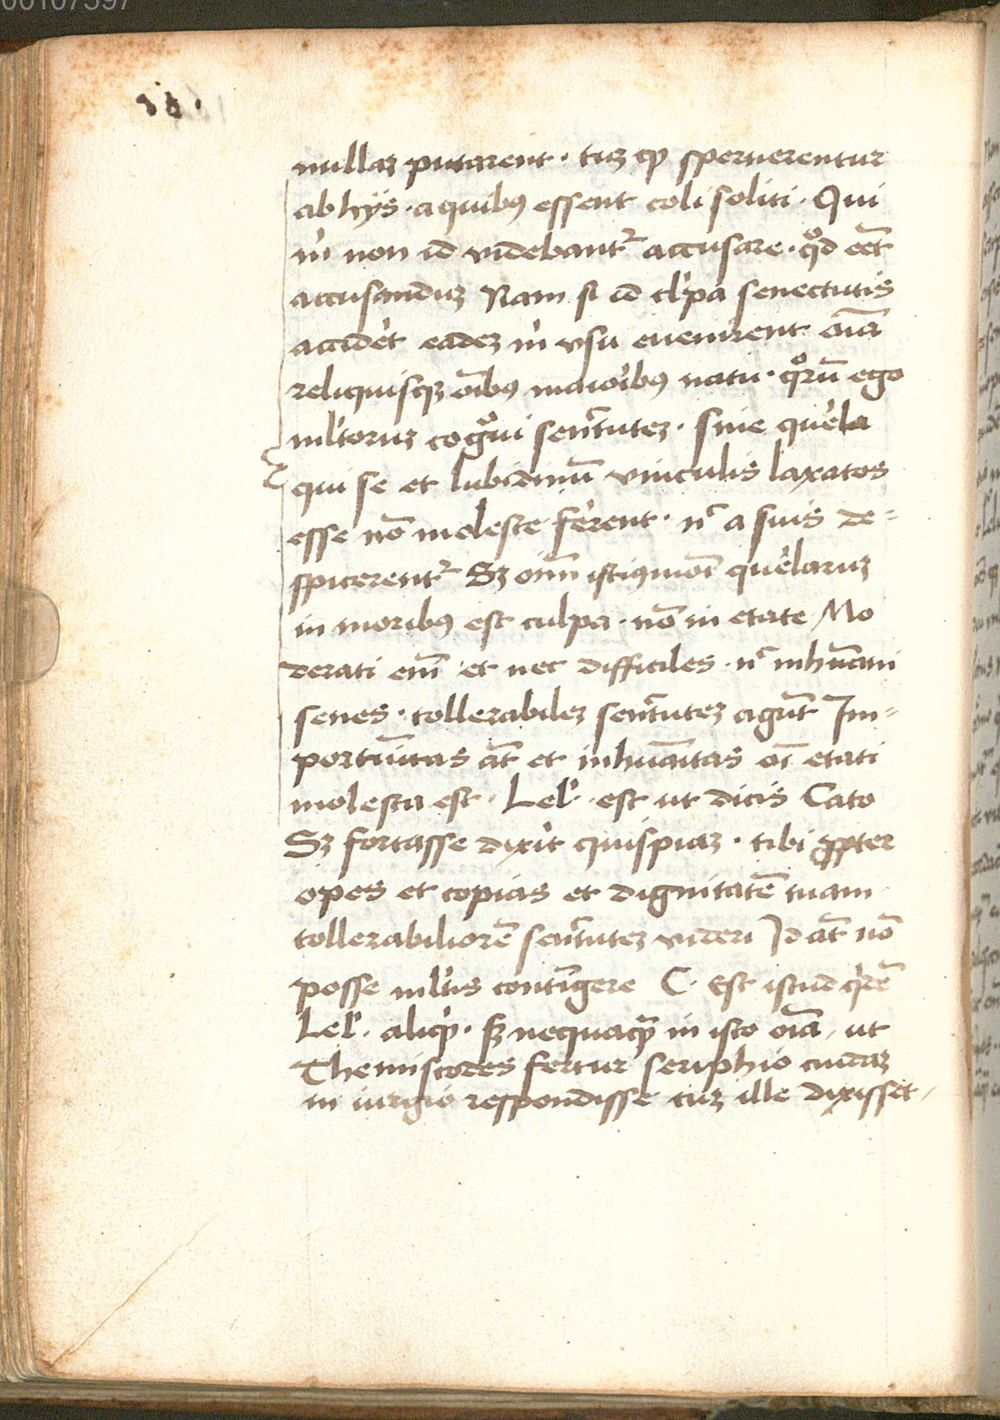 00107597
nullaꝫ putarent · tuꝫ ꝙ spernerentur
ab hijs · a quibꝰ essent coli soliti · Qui
m̊ non id videbant᷑ accusare · qͦd eēt
accusanduꝫ Nam si id cl'pa senectutis
accider̄t eadeꝫ m̊ vsu euenirent oīa
reliquisqꝫ oībꝰ maioribꝰ natu · qͦrū ego
ml'toruꝫ cogͦui senc̄tuteꝫ · sine querela
qui se et lubidinū vinculis laxatos
esse nō moleste ferrent · nͨ a suis de-
spicerent᷑ Sꝫ oīm istiꝰmōi querelaruꝫ
in moribꝰ est culpa · nō in etate Mo
derati em̄ et nec difficiles · nͨ inhūani
senes · tollerabileꝫ senc̄tuteꝫ agūt Im-
portūitas āt et inhūaītas oī etati
molesta est · Lel' · est ut dicis Cato
Sꝫ fortasse dixit quispiaꝫ · tibi ꝓpter
opes et copias et dignitatē tuam
tollerabiliorē senc̄tuteꝫ videri Id āt nō
posse ml'tis contīgere C · Est istud qͥdē
Lel' · aliqͥd · sꝫ nequaqͣꝫ in isto oīa · ut
Themistodes fertur seriphio cuidaꝫ
in iurgio respondisse cuꝫ ille dixisset